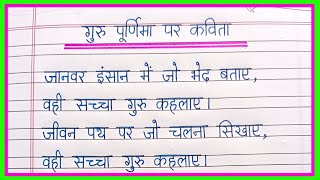 गुरु पूर्णिमा पर कविता
जानवर इंसान में जो भेद बताए,
वही सच्चा गुरु कहलाए।
जीवन पथ पर जो चलना सिखाए,
वही सच्चा गुरु कहलाए।